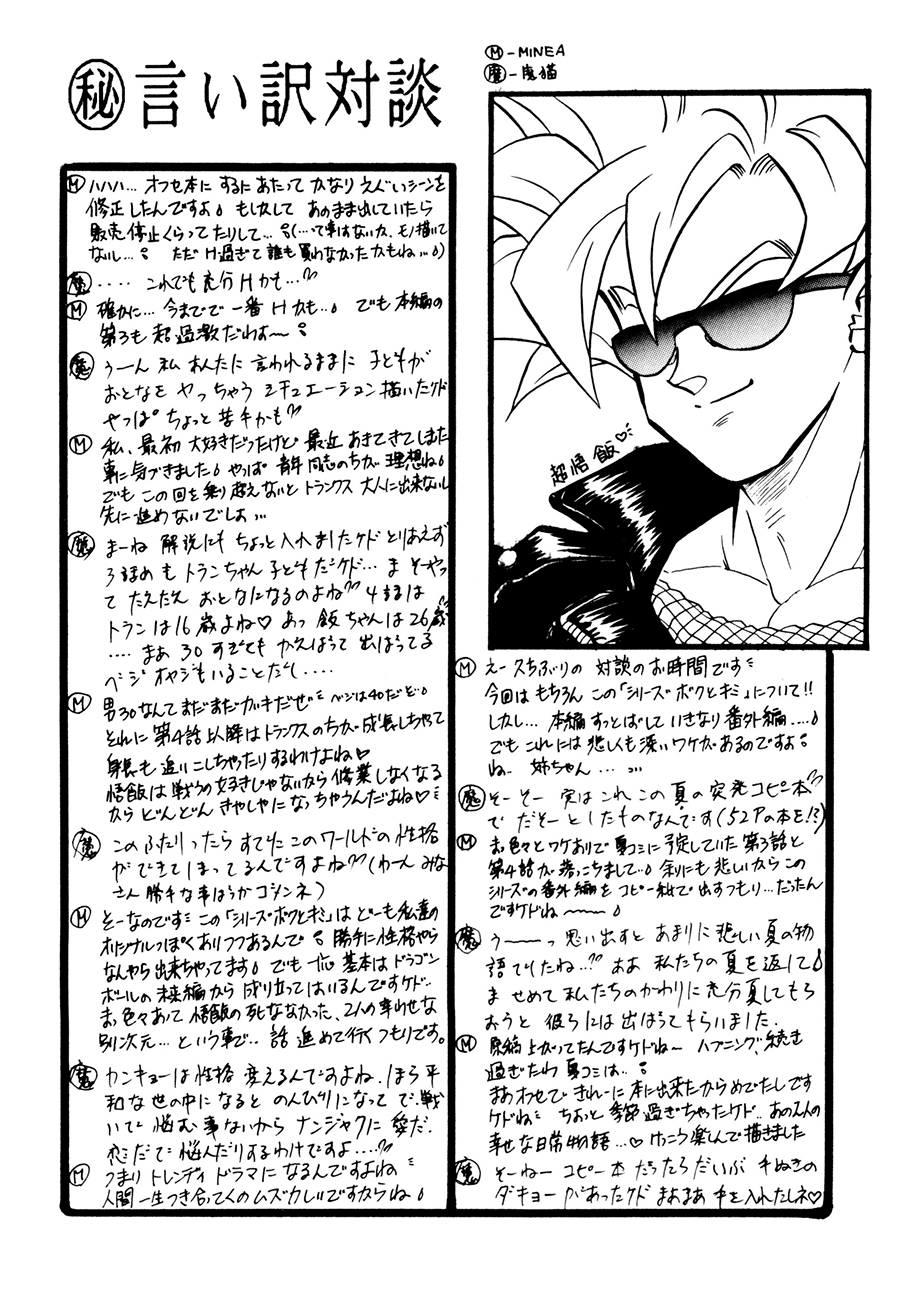 ㊙言い訳対談
Ⓜ-MINEA
魔-魔猫
超悟飯♡
Ⓜ えー久々ぶりの 対談のお時間です
今回はもちろん この「シリーズ ボクとキミ」について!!
しかし… 本編すっとばして いきなり番外編…
でも これには悲しくも深いワケがあるのですよ
ね 姉ちゃん…
魔 そーそー 実はこれ この夏の突発コピー本
で だそーとしたものなんです(52Pの本を!?)
Ⓜ ま、色々とワケありで夏コミに予定していた第3話と
第4話が落っこちまして 余りにも悲しいからこの
シリーズの番外編を コピー紙で出すつもり…だったん
ですケドね〜〜
魔 う〜〜っ 思い出すと あまりに悲しい夏の物
語でしたね… ああ 私たちの夏を返して
ま せめて私たちのかわりに充分夏してもら
おうと 彼らには出ばってもらいました.
Ⓜ 原稿上がってたんですケドね〜 ハプニング続き
過ぎたわ 夏コミは…
まあオフセで きれーに本に出来たからめでたしです
ケドね ちょっと季節過ぎちゃったケド.. あの2人の
幸せな日常物語…♡ けっこう楽しんで描きました
魔 そーねー コピー本 だったらだいぶ 手ぬきの
ダキョーがあったケド まあまあ 力を入れたしネ♡
Ⓜ ハハハ… オフセ本に するにあたって かなりえぐいシーンを
修正したんですよ もしかして あのまま出していたら
販売停止くらってたりして…(…って事はないか、モノ描いて
ないし… ただH過ぎて誰も買わなかったかもね…)
魔 ‥‥ これでも充分Hかも…
Ⓜ 確かに… 今までで一番Hかも… でも本編の
第3も超過激だわよ〜
魔 うーん 私 あんたに言われるままに 子どもが
おとなを やっちゃう シチュエーション描いたケド
やっぱ ちょっと苦手かも
Ⓜ 私、最初大好きだったけど 最近あきてきてしまた
事に気づきました やっぱ青年同志のちが理想ね
でも この回を乗り越えないと トランクス大人に出来ないし
先に進めないでしょ…
魔 まーね 解説にも ちょっと入れましたケド とりあえず
3話めもトランちゃん子どもだケド… ま そーやっ
て だんだん おとなになるのよね 4話は
トランは16歳よね♡ あっ 飯ちゃんは26歳
‥‥ まあ 30すぎても がんばって 出ばってる
ベジオヤジもいることだし‥‥
Ⓜ 男30なんてまだまだガキだぜ ベジは40だど
それに 第4話以降はトランクスのちが成長しちゃって
身長も追いこしちゃったりするわけよね♡
悟飯は戦うの好きじゃないから修業しなくなる
からどんどん きゃしゃになっちゃうんだよね♡
魔 このふたりったら すでにこのワールドの性格
ができてしまってるんですよね(わーん みな
さん 勝手な事ほうが ゴメンネ)
Ⓜ そーなのです この「シリーズボクとキミ」はどーも私達の
オリジナルっぽくありつつあるんで 勝手に性格やら
なんやら出来ちゃってます でも一応 基本はドラゴン
ボールの 未来編から 成り立ってはいるんですケド…
ま、色々あって 悟飯の死ななかった、2人の幸わせな
別次元… という事で.. 話 進めて行くつもりです。
魔 カンキョーは性格 変えるんですよね. ほら 平
和な世の中になると のんびりになって で、戦
いで 悩む事ないから ナンジャクに 愛だ.
恋だで 悩んだりするわけですよ‥‥
Ⓜ つまり トレンディドラマになるんですよね
人間一生つき合ってくのムズカしいですからね